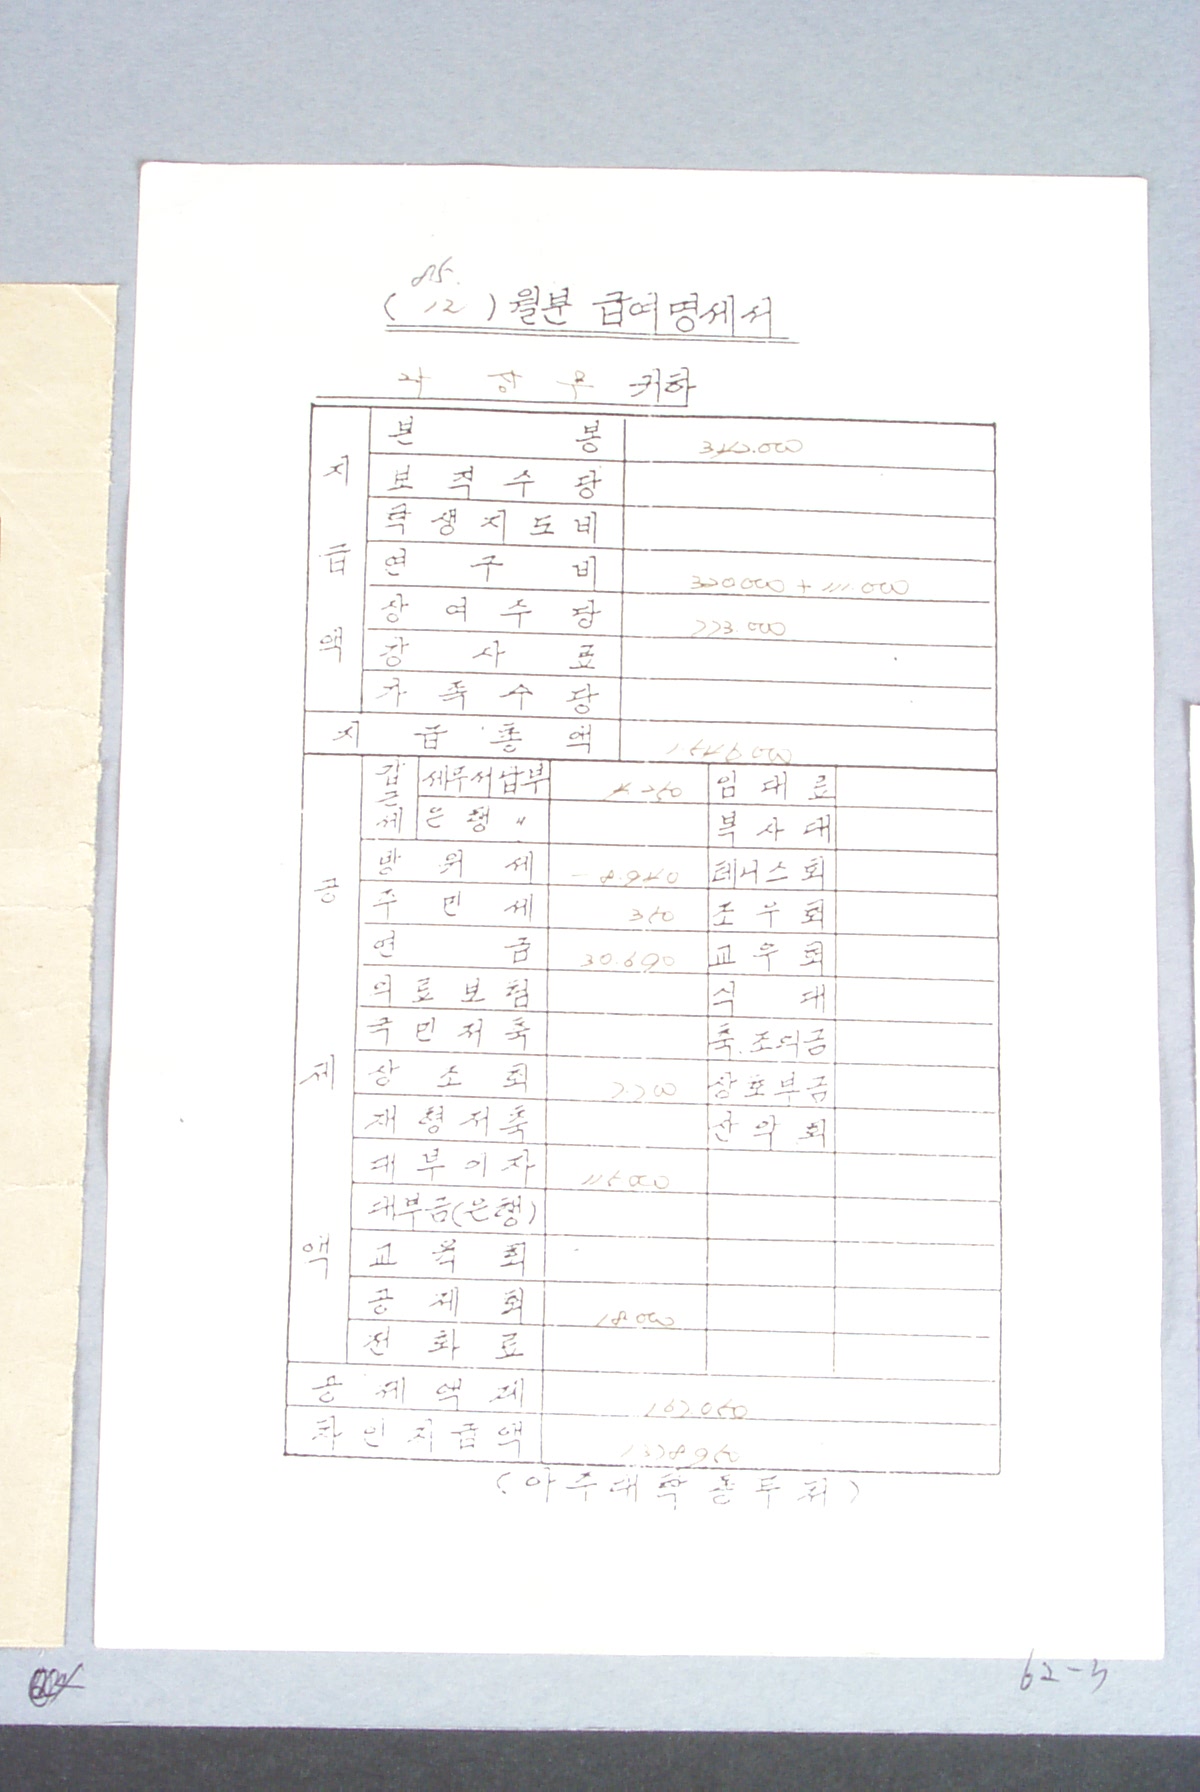 85.
( 12 ) 월분 급여명세서
귀하
지급액
본봉
보직수당
학생지도비
연구비 320.000 + 111.000
상여수당
강사료
가족수당
지급총액
공제액
갑근세 세무서납부 임대료
은행 〃 복사대
방위세 8.940 테니스회
주민세 조우회
연금 30.690 교우회
의료보험 식대
국민저축 축.조의금
상조회 2.200 상호부금
재형저축 산악회
대부이자
대부금(은행)
교육회
공제회 18.000
전화료
공제액계
차인지급액
(아주대학총무처)
62-5